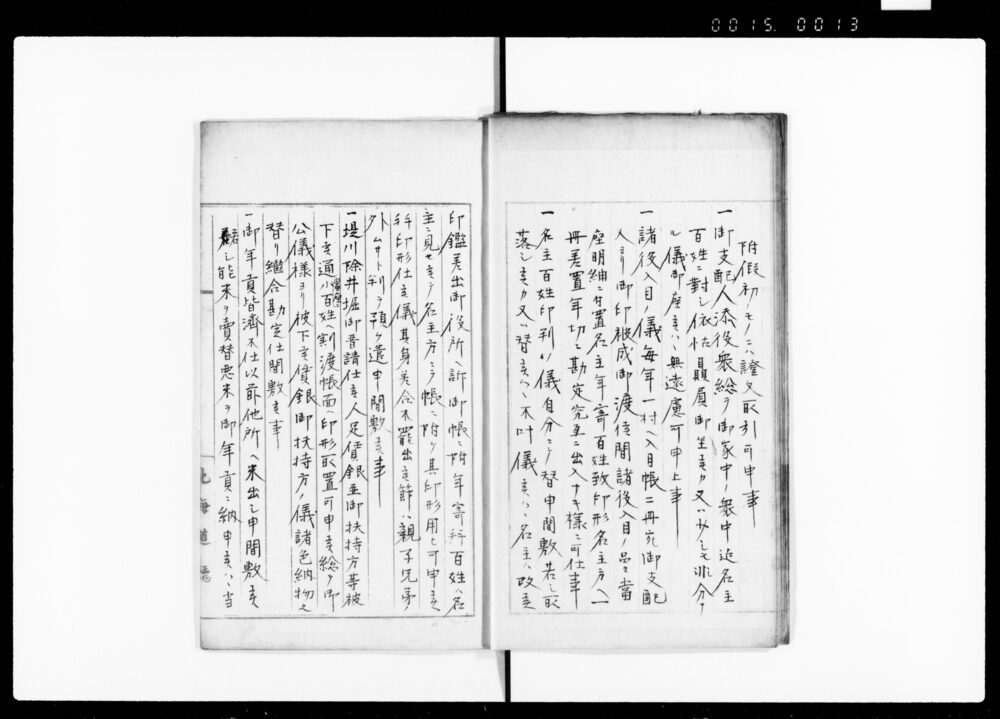 0015. 0013
附假初ノモノニハ證文取引可申事
一御支配人添役衆総ヲ御家中ノ衆中近名主
百姓ニ對シ依怙贔屓御坐候カ又ハ少シモ非分ヲ
シ儀御座候ハヽ無遠慮可申上事
一諸役入目ノ儀毎年一村ヘ入目帳二冊宛御支配
人ヨリ御印被成御渡候間諸役入目ノ品々當
座明細ニ付置名主年寄百姓致印形名主方ヘ一
冊差置年切ニ勘定究至ニ出入ナキ様ニ可仕事
一名主百姓印判ノ儀自分ニテ替申間敷若シ取
落シ候カ又ハ替候ハヽ不叶儀候ハヽ名主ハ改候
印鑑差出御役所ヘ訴御帳ニ附年寄幷百姓ハ名
主ニ見セ候テ名主方ニテ帳ニ附ケ其印形用ヒ可申候
幷印形仕候儀其身差合不罷出候節ハ親子兄弟ノ
外ムサト判ヲ預ケ遣申間敷候事
一堤川除井堀御普請仕候人足賃銀並御扶持方等被
下候通小百姓ヘ割渡帳面ヘ印形取置可申候総テ御
公儀様ヨリ被下候賃銀御扶持方ノ儀諸色納物之
替リ繼合勘定仕間敷候事
一御年貢皆濟不仕以前他所ヘ米出シ申間敷候
シ能米ヲ賣替悪米ヲ御年貢ニ納申候ハヽ当
北海道廳